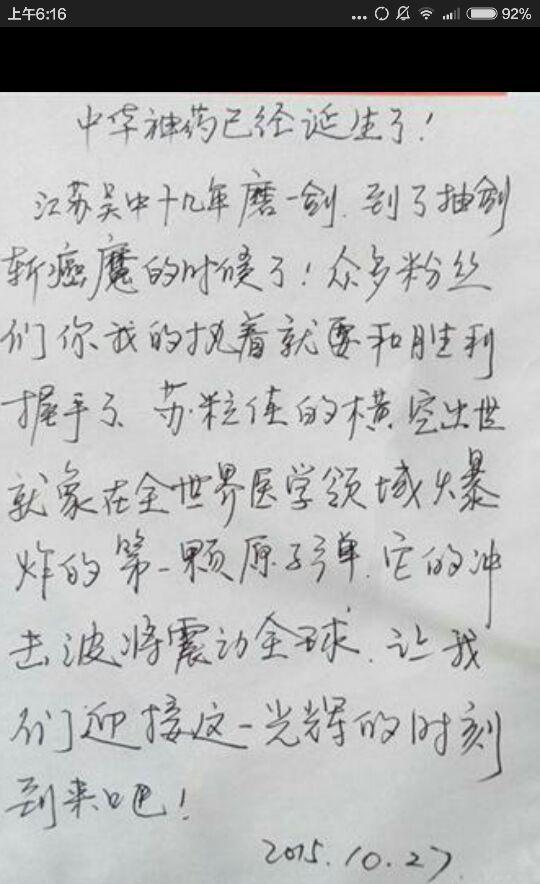 上午6:16
92%
中华神药已经诞生了！
江苏吴中十几年磨一剑.到了抽剑
斩癌魔的时候了！众多粉丝
们你我的执着就要和胜利
握手了、苏·粒佳的横空出世
就象在全世界医学领域爆
炸的第一颗原子弹.它的冲
击波将震动全球.让我
们迎接这一光辉的时刻
到来吧！
2015.10.27